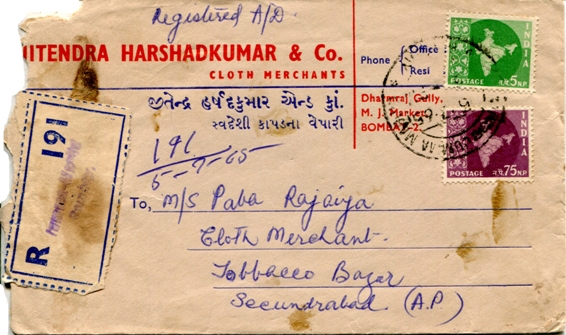 Registered A/D.
JITENDRA HARSHADKUMAR & Co.
CLOTH MERCHANTS
Phone { Office
Resi
જીતેન્દ્ર હર્ષદકુમાર એન્ડ કાં.
સ્વદેશી કાપડના વેપારી
Dharmraj Gully,
M. J. Market,
BOMBAY-2.
INDIA
POSTAGE न.पै. 5 NP
INDIA
POSTAGE न.पै. 75 NP
R 191
191
5-9-65
To, M/S Paba Rajaiya
Cloth Merchant.
Tobbacco Bazar
Secundrabad (A.P)